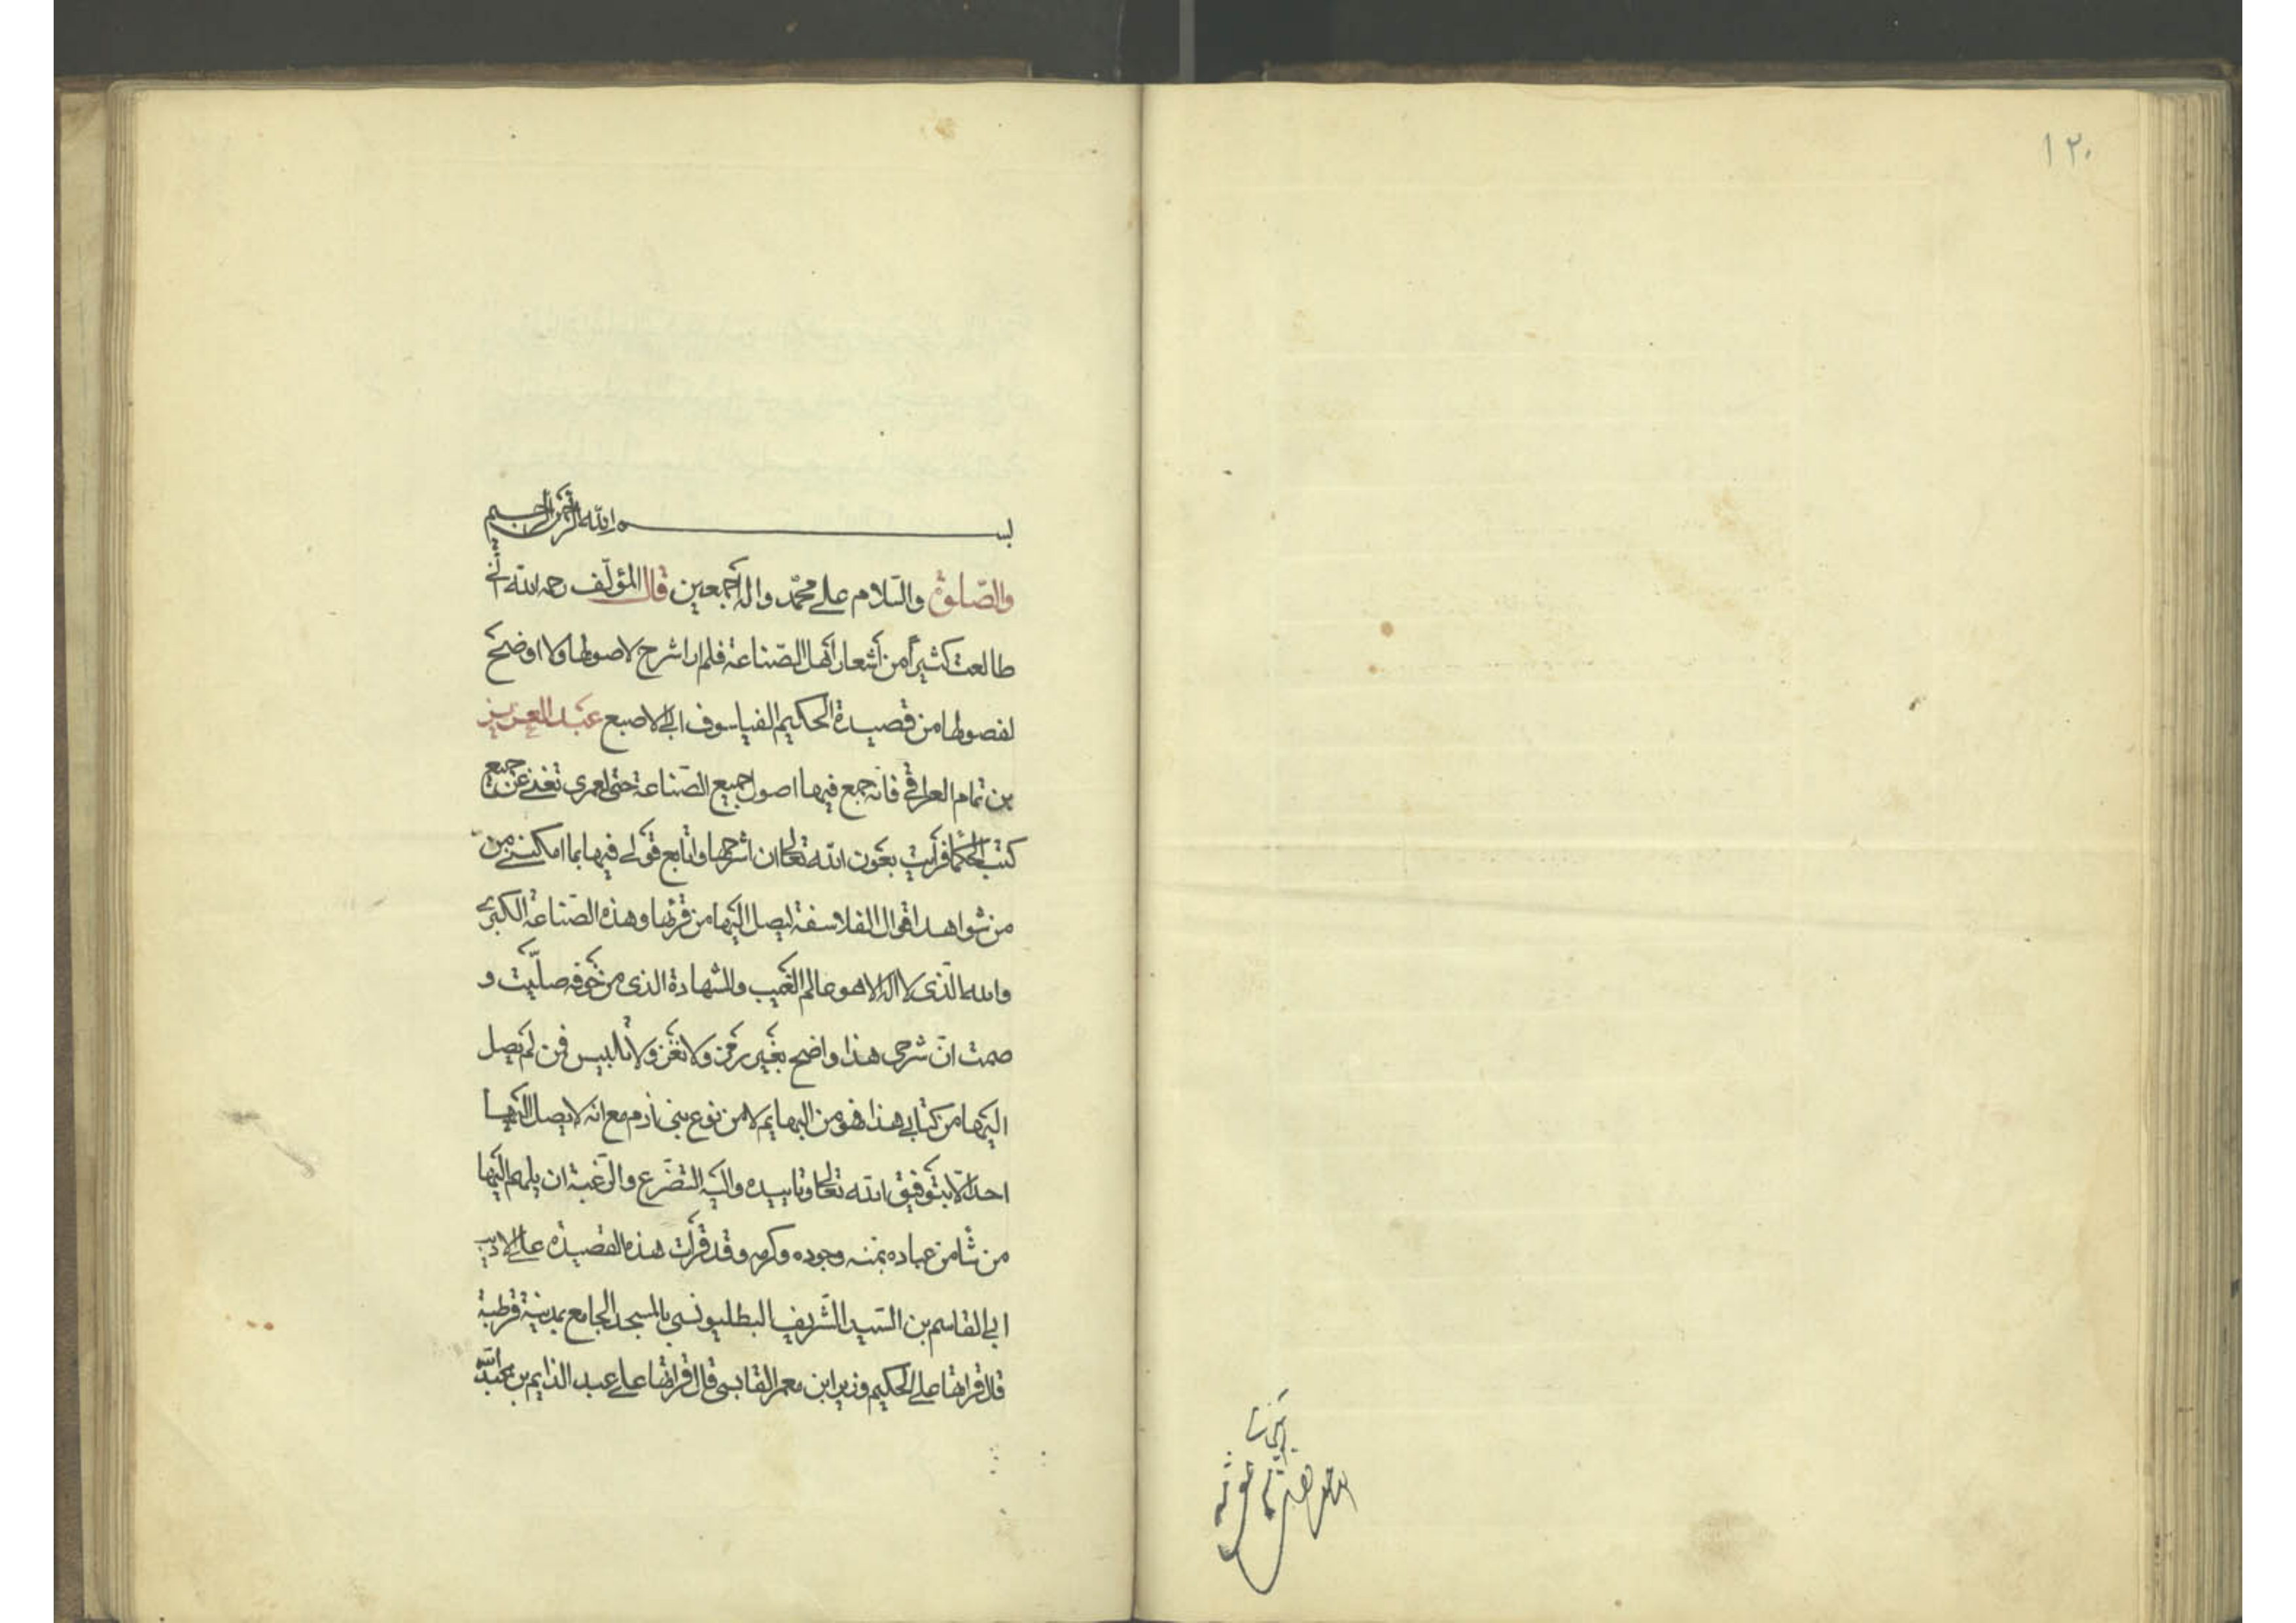 ١٢٠
بسم الله الرحمن الرحيم
والصلوة والسلام على محمد واله اجمعين قال المؤلف رحمه الله اني
طالعت كثيرا من اشعار اهل الصناعة فلم ار اشرح لاصولها ولا اوضح
لفصولها من قصيدة الحكيم الفيلسوف ابي الاصبع عبد العزيز
بن تمام العراقي فانه جمع فيها اصول جميع الصناعة حتى لعمري تغني عن جميع
كتب الحكما فرايت بعون الله تعالى ان اشرحها واتابع قولي فيها بما امكنني من
من شواهد اقوال الفلاسفة ليصل اليها من قرئها وهذه الصناعة الكبرى
والله الذي لا اله الا هو عالم الغيب والشهادة الذي من خوفه صليت و
صمت ان شرحي هذا واضح بغير رمز ولا لغز ولا تلبيس فمن لم يصل
اليها من كتابي هذا فهو من البهايم لا من نوع بني ادم مع انه لا يصل اليها
احد الا بتوفيق الله تعالى وتاييده واليه التضرع والرغبة ان يلهم اليها
من شا من عباده بمنه وجوده وكرمه وقد قرأت هذه القصيدة على الاديب
ابي القاسم بن السيد الشريف البطليونسي بالمسجد الجامع بمدينة قرطبة
قال قراتها على الحكيم وزير ابن معمر القابسي قال قراتها على عبد الدايم بن عبد الله